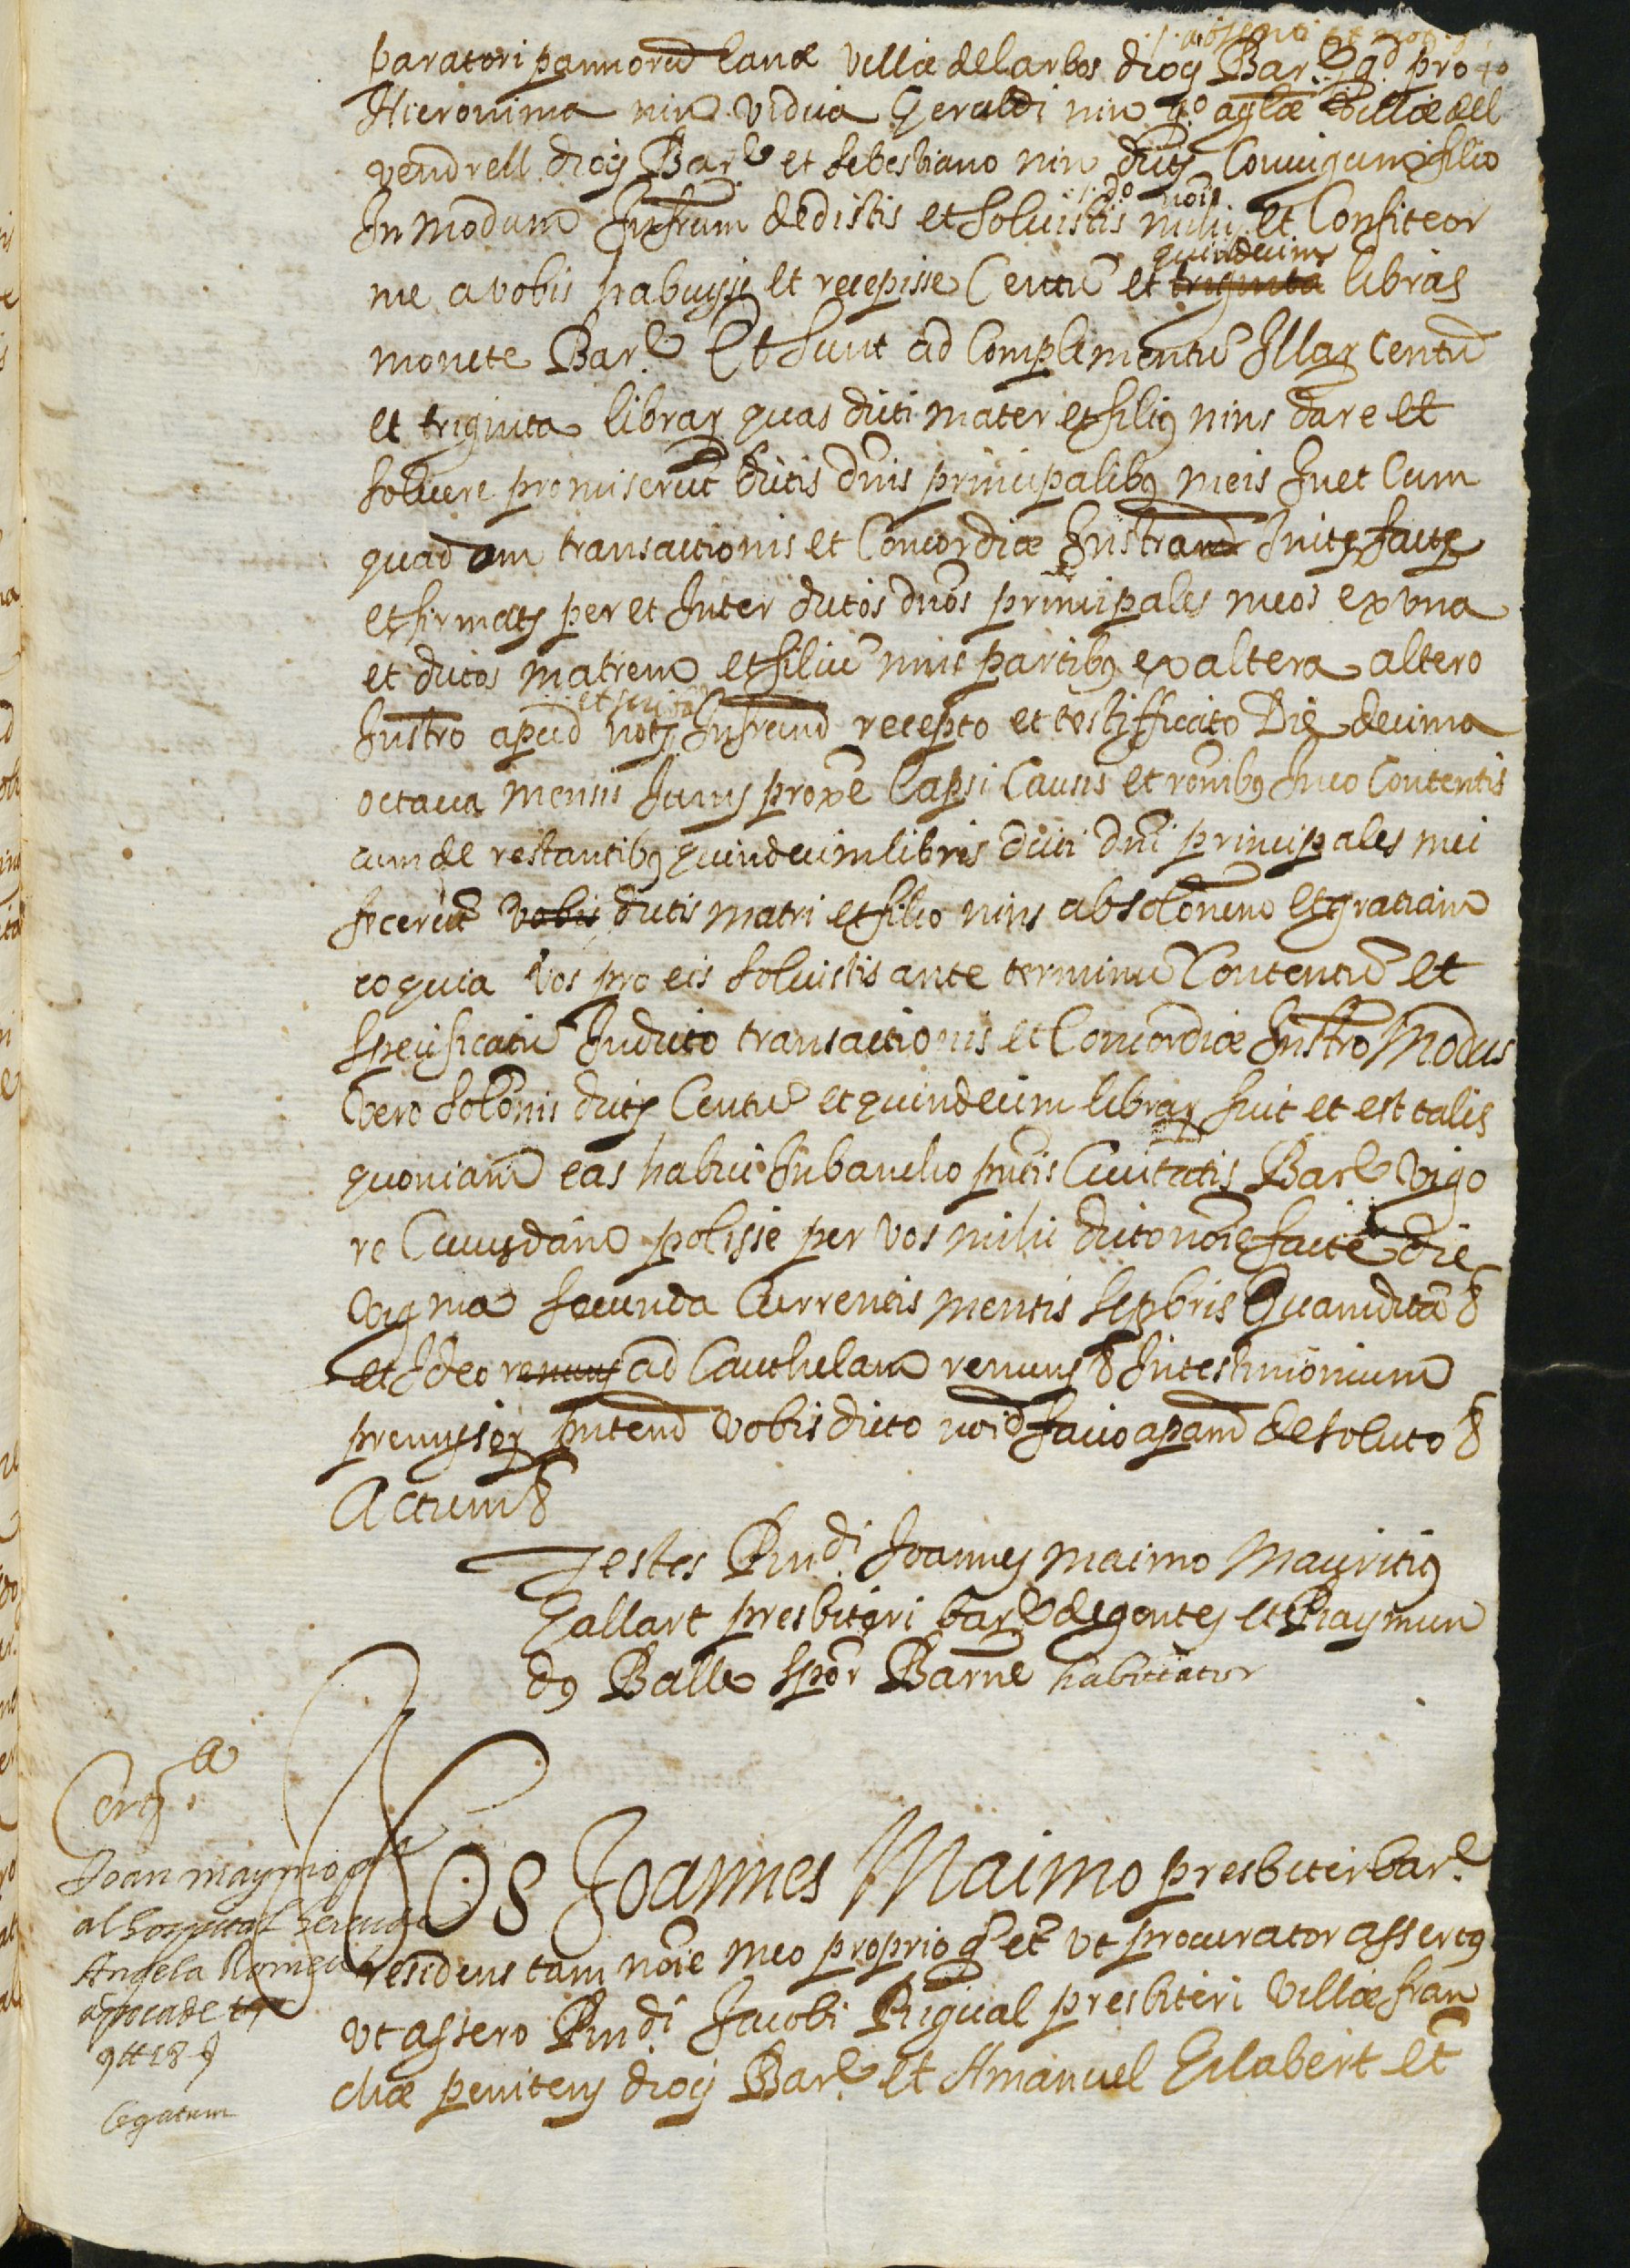 paratori pannorū lanæ villæ del arbos diocs Barᵉ
Hieronima nin vidua Geraldi nin qº villæ del
vendrell diocs Barᵉ et sebestiano nin dictȝ Coniugum filio
dº noīe
In modum Infrum dedistis et soluistis mihi et Confiteor
quindecim
me a vobis habuisse et recepisse Centū et triginta libras
monete Barᵉ Et sunt ad Complimentū Illaꝝ centū
et triginta libraꝝ quas dicti mater et filiꝯ nins dare et
soluere promiserūt dictis dnīs principalibꝯ meis In et Cum
quadam transactionis et Concordiæ Instro Inite facte
et firmate per et Inter dictos dnōs principales meos ex vna
et dictos matrem et filiū nins partibꝯ ex altera altero
Instro apud notȝ Infrum recepto et testifficato Die decima
octaua mensis Junii proxē lapsi Causis et ronībꝯ In eo Contentis
cum de restantibꝯ quindecim libris dicti dnī principales mei
fecerūt vobis dictis matri et filio nins absolonem et gratiam
eo quia vos pro eis soluistis ante terminū Contentū et
specificatū In dicto transactionis et Concordiæ Instro Modus
vero solonīs dictȝ Centū et quindecim libraꝝ fuit et est talis
quoniam eas habui In bancho pntīs Ciuitatis Barᵉ vigo
re Cuiusdam polissie per vos mihi dicto noīe facte die
vigma secunda Currentis mentis septbris Quamdictā &
et Ideo renuns ad Cauthelam renuns & In testimonium
premissoꝝ pntem vobis dicto noīe facio apam de soluto &
Actum &
Testes Rndi Joannes maimo Mauritiꝯ
Gallart presbiteri barᵉ degentes et Raymun
dꝯ Balle spor Barnē habitator
Joan maymo pre
al hospital
Angela Romeu
apoca de
9 tt 18 ß
Legatum
Nos Joannes Maimo presbiter barᵉ
residens tam noīe meo proprio q̄ et ut procurator assertꝯ
ut assero Rndi Jacobi Rigual presbiteri villæ fran
chæ penitens diocs Barᵉ et Amanuel Gilabert et